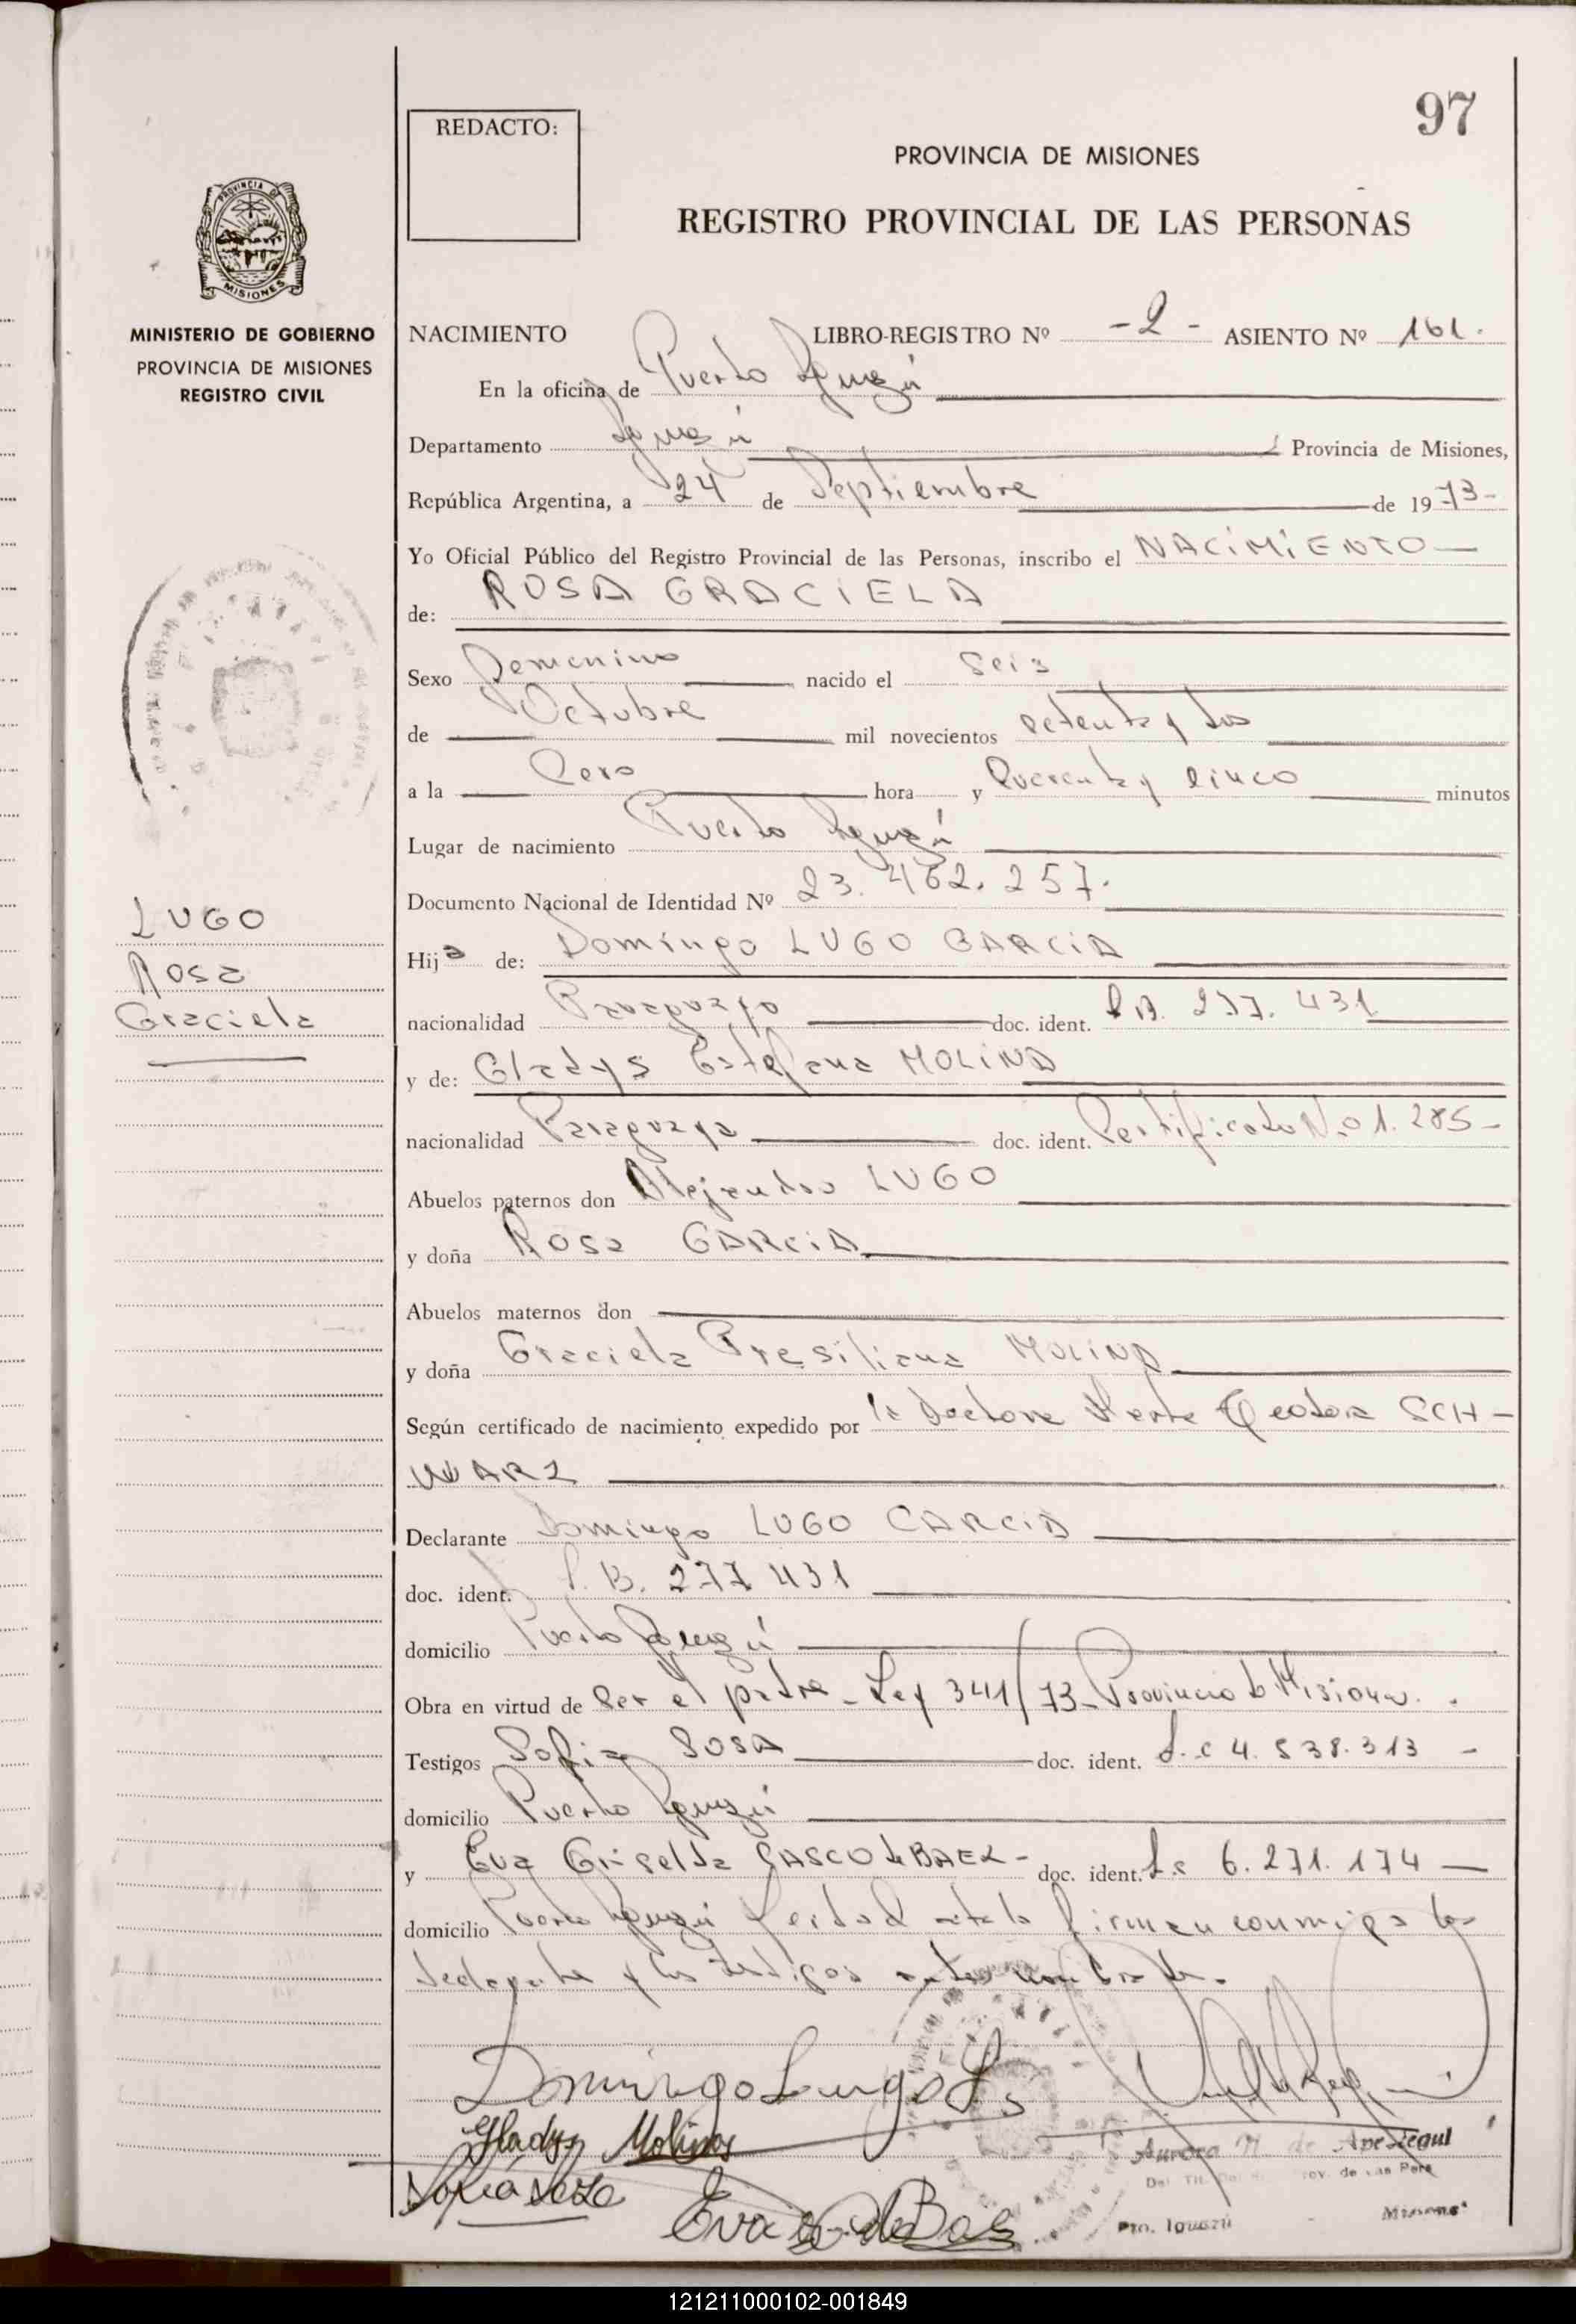 97
REDACTO:
PROVINCIA DE MISIONES
REGISTRO PROVINCIAL DE LAS PERSONAS
PROVINCIA DE
MISIONES
MINISTERIO DE GOBIERNO
PROVINCIA DE MISIONES
REGISTRO CIVIL
LUGO
Rosa
Graciela
NACIMIENTO LIBRO-REGISTRO Nº -2- ASIENTO Nº 161.
En la oficina de Puerto Iguazú
Departamento Iguazú Provincia de Misiones,
República Argentina, a 24 de Septiembre de 1973-
Yo Oficial Público del Registro Provincial de las Personas, inscribo el NACIMIENTO
de: ROSA GRACIELA
Sexo Femenino nacido el Seis
de Octubre mil novecientos setenta y dos
a la Cero hora y Cuarenta y cinco minutos
Lugar de nacimiento Puerto Iguazú
Documento Nacional de Identidad Nº 23.462.257.
Hija de: Domingo LUGO GARCIA
nacionalidad Paraguayo doc. ident. 277.431
y de: Gladys Estefana MOLINA
nacionalidad Paraguaya doc. ident. Certificado N.01.285-
Abuelos paternos don Alejandro LUGO
y doña Rosa GARCIA
Abuelos maternos don
y doña Graciela Presiliana MOLINA
Según certificado de nacimiento expedido por la Doctora Teodora SCH-
WARZ
Declarante Domingo LUGO GARCIA
doc. ident. C.B. 277 431
domicilio Puerto Iguazú
Obra en virtud de Ser el padre - Ley 341/73 - Provincia de Misiones.
Testigos Sofia SOSA doc. ident. L.C 4.538.313 -
domicilio Puerto Iguazú
y Eva Griselda GASCO de BAEZ- doc. ident. L.C 6.271.174
domicilio Puerto Iguazú Leída el acta la firman conmigo los
declarante y los testigos antes nombrados.
Domingo Lugo
Gladys Molinas
Sofía Sosa
Eva G. de Baez
Aurora M de Apestegui
Pto. Iguazú
Misiones
121211000102-001849